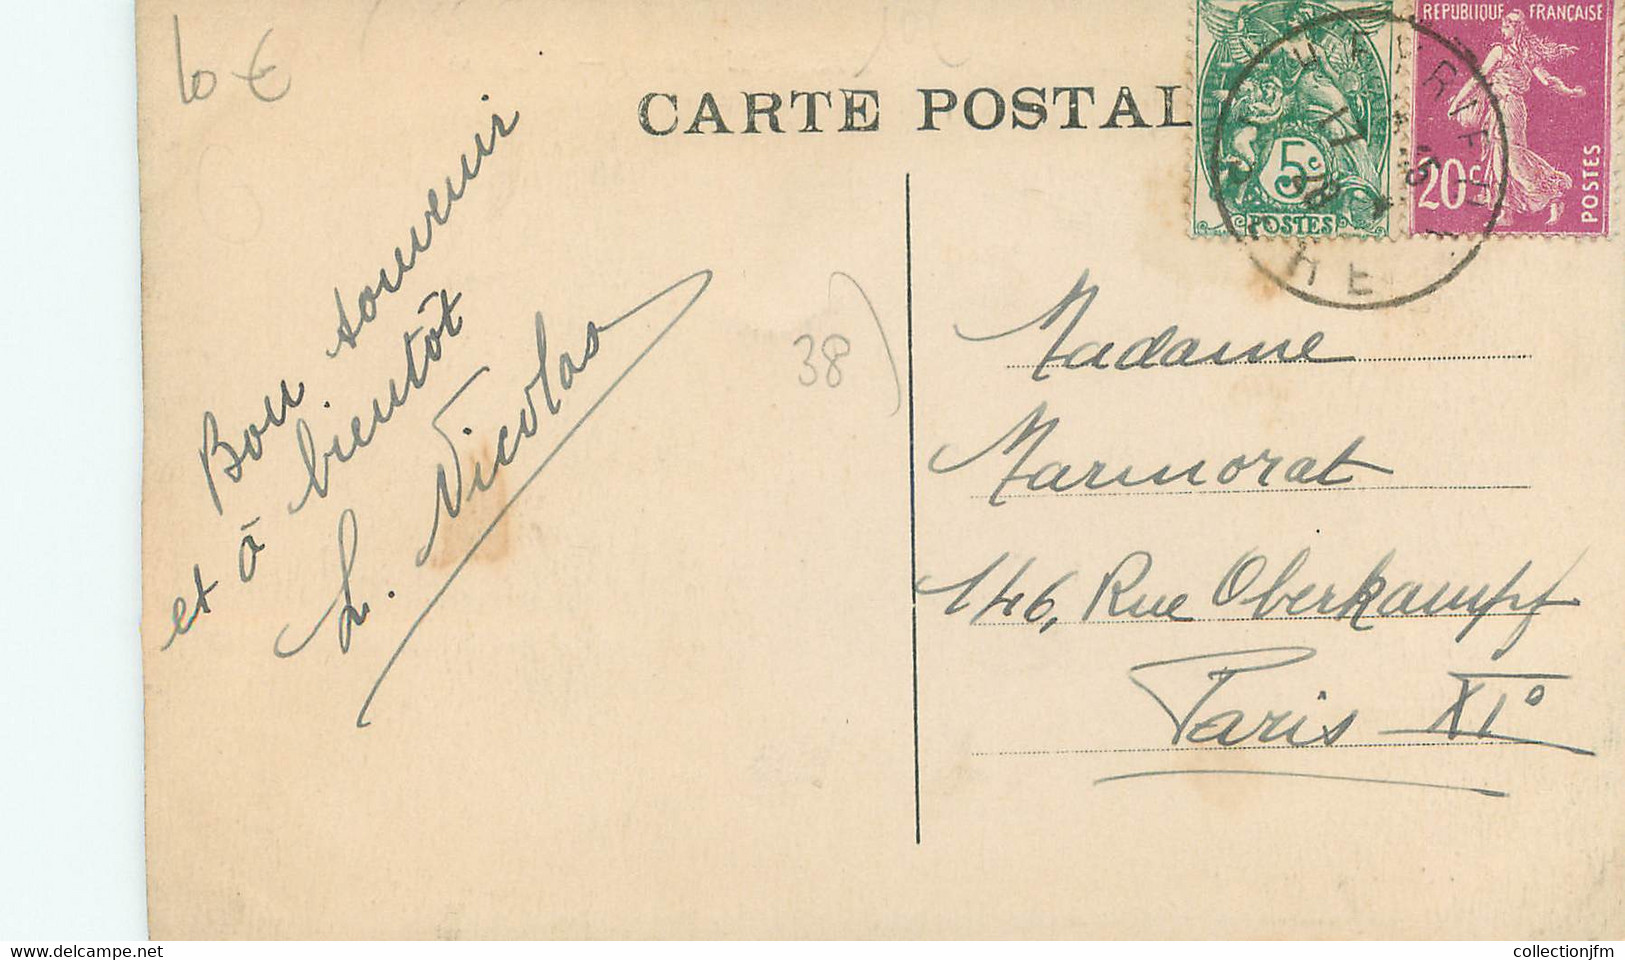 6€
CARTE POSTAL
5c
POSTES
REPUBLIQUE FRANÇAISE
20c
POSTES
17
Bon souvenir
et à bientôt
L. Nicolas
38
Madame
Marmorat
146, Rue Oberkampf
Paris XIº
collectionjfm